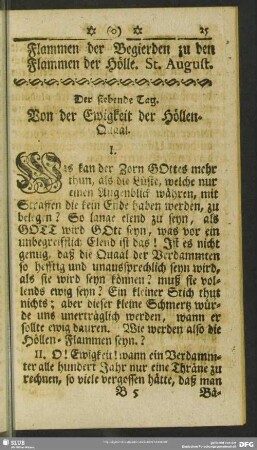 (o) 25
Flammen der Begierden zu den
Flammen der Hölle. St. August.
Der siebende Tag.
Von der Ewigkeit der Höllen-
Quaal.
I.
Was kan der Zorn GOttes mehr
thun, als die Lüste, welche nur
einen Augenblick währen, mit
Straffen die kein Ende haben werden, zu
belegen? So lange elend zu seyn, als
GOTT wird GOtt seyn, was vor ein
unbegreifflich Elend ist das! Ist es nicht
genug, daß die Quaal der Verdammten
so hefftig und unaussprechlich seyn wird,
als sie wird seyn können? muß sie vol-
lends ewig seyn? Ein kleiner Stich thut
nichts; aber dieser kleine Schmertz wür-
de uns unerträglich werden, wann er
sollte ewig dauren. Wie werden also die
Höllen-Flammen seyn.?
II. O! Ewigkeit! wann ein Verdamm-
ter alle hundert Jahr nur eine Thräne zu
rechnen, so viele vergossen hätte, daß man
B 5 Bä-
SLUB
DFG